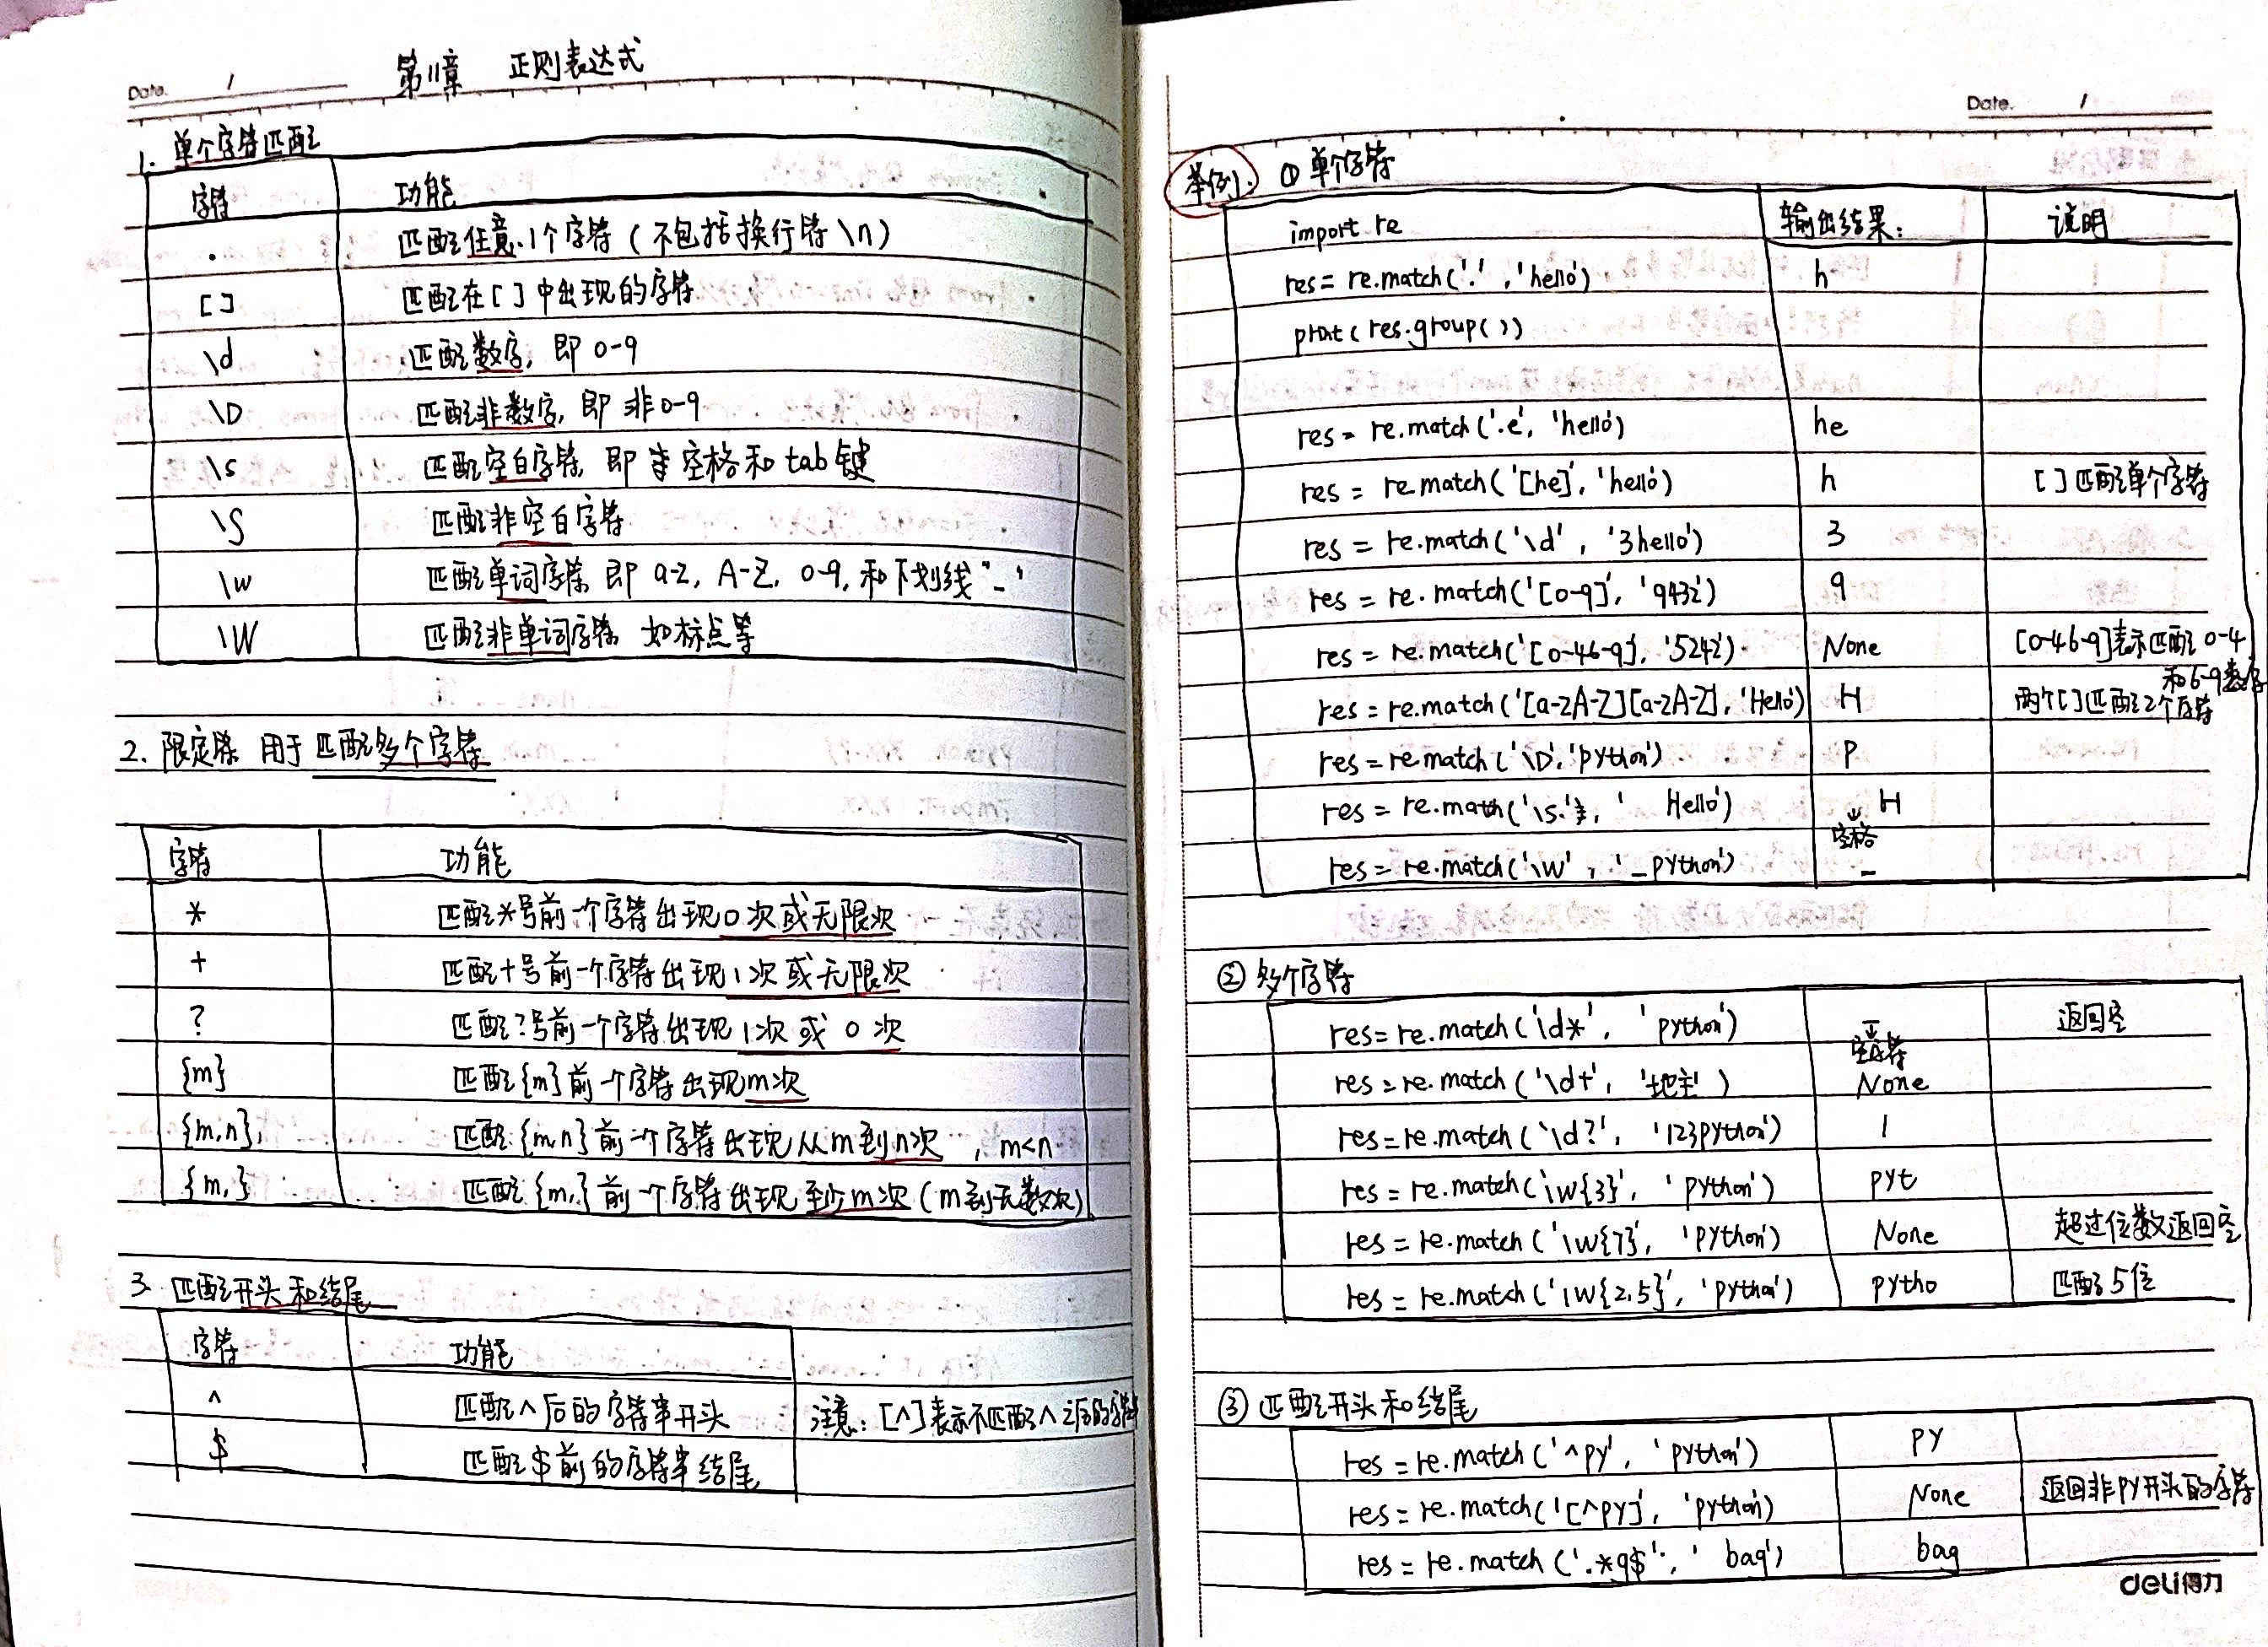 Date. /
第11章 正则表达式
1. 单个字符匹配
字符 功能
. 匹配任意1个字符(不包括换行符\n)
[] 匹配在[]中出现的字符
\d 匹配数字,即0-9
\D 匹配非数字,即非0-9
\s 匹配空白字符 即 空格和tab键
\S 匹配非空白字符
\w 匹配单词字符 即 a-z, A-Z, 0-9, 和下划线"_"
\W 匹配非单词字符 如标点等
2. 限定符 用于匹配多个字符
字符 功能
* 匹配*号前一个字符出现0次或无限次
+ 匹配+号前一个字符出现1次或无限次
? 匹配?号前一个字符出现1次或0次
{m} 匹配{m}前一个字符出现m次
{m,n}, 匹配{m,n}前一个字符出现从m到n次, m<n
{m,} 匹配{m,}前一个字符出现至少m次(m到无数次)
3. 匹配开头和结尾
字符 功能
^ 匹配^后的字符串开头 注意:[^]表示不匹配^之后的字符
$ 匹配$前的字符串结尾
Date. /
举例: ① 单个字符
import re 输出结果: 说明
res = re.match('.', 'hello') h
print(res.group())
res = re.match('.e', 'hello') he
res = re.match('[he]', 'hello') h []匹配单个字符
res = re.match('\d', '3hello') 3
res = re.match('[0-9]', '9432') 9
res = re.match('[0-46-9]', '5242') None [0-46-9]表示匹配0-4
和6-9数字
res = re.match('[a-zA-Z][a-zA-Z], 'Hello') H 两个[]匹配2个字符
res = re.match('\D', 'python') p
res = re.math('\s.', ' Hello') H
空格
res = re.match('\w', '_python') _
② 多个字符
res = re.match('\d*', 'python') 返回空
空字符
res = re.match('\d+', '地主') None
res = re.match('\d?', '123python') 1
res = re.match('\w{3}', 'python') pyt
res = re.match('\w{7}', 'python') None 超过位数返回空
res = re.match('\w{2,5}', 'python') pytho 匹配5位
③ 匹配开头和结尾
res = re.match('^py', 'python') py
res = re.match('[^py]', 'python') None 返回非py开头的字符
res = re.match('.*g$', 'bag') bag
deli得力